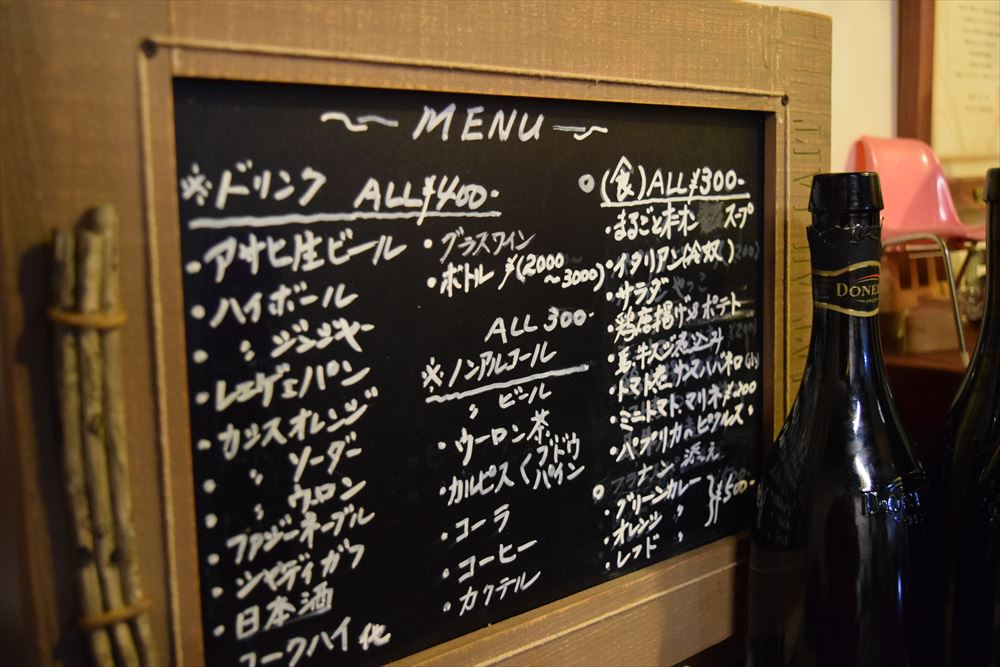 MENU
※ドリンク ALL¥400-
・アサヒ生ビール
・ハイボール
・〃 ジンジャー
・レエゲェパン
・カシスオレンジ
・〃 ソーダー
・〃 ウーロン
・ファジーネーブル
・シャディガフ
・日本酒
コークハイ 他
・グラスワイン
・ボトル ¥(2000
~3000)
ALL 300-
※ノンアルコール
〃 ビール
・ウーロン茶
・カルピス〈ブドウ
パイン
・コーラ
・コーヒー
・カクテル
(食)ALL¥300-
・まるごと スープ
・イタリアン
・サラダ
・鶏唐揚げ ポテト
・馬、牛スジ煮込み
・トマト煮
・ミニトマト、マリネ ¥200
・パプリカのピクルス
・グリーンカレー
・オレンジ 〃
・レッド 〃
¥500-
DONE